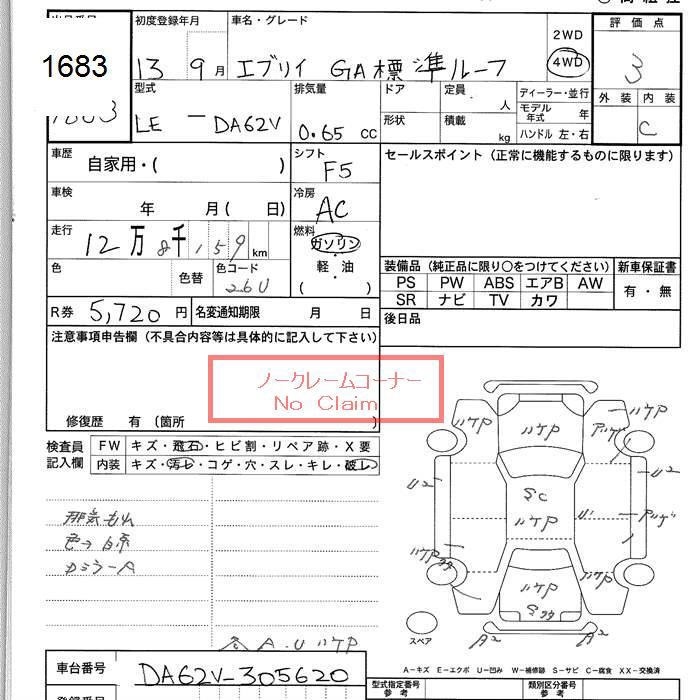 1683
初度登録年月
車名・グレード
2WD
4WD
13 9月
エブリイ GA標準ルーフ
評価点
3
外装 内装
C
型式
LE－DA62V
排気量
0.65 cc
ドア
形状
定員 人
積載 kg
ディーラー・並行
モデル年式 年
ハンドル 左・右
車歴
自家用・( )
シフト
F5
セールスポイント (正常に機能するものに限ります)
車検
年 月( 日)
冷房
AC
走行
12万8千159km
燃料
ガソリン・軽・油
( )
色
色替
色コード
26U
装備品 (純正品に限り○をつけてください)
PS PW ABS エアB AW
SR ナビ TV カワ
新車保証書
有・無
R券 5,720円
名変通知期限 月 日
後日品
注意事項申告欄 (不具合内容等は具体的に記入して下さい)
ノークレームコーナー
No Claim
修復歴 有 (箇所 )
検査員記入欄
FW キズ・飛石・ヒビ割・リペア跡・X要
内装 キズ・汚レ・コゲ・穴・スレ・キレ・破レ
排気もれ
カミラーA
各A.UハゲP
ハゲP
ハゲP
ハゲP
アゲ
U2
U2
SC
ハゲP
U'
ハゲP
ハゲP
ハゲP
A2
A2
スペア
A－キズ E－エクボ U－凹み W－補修跡 S－サビ C－腐食 XX－交換済
車台番号
DA62V-305620
型式指定番号
参考
類別区分番号
参考